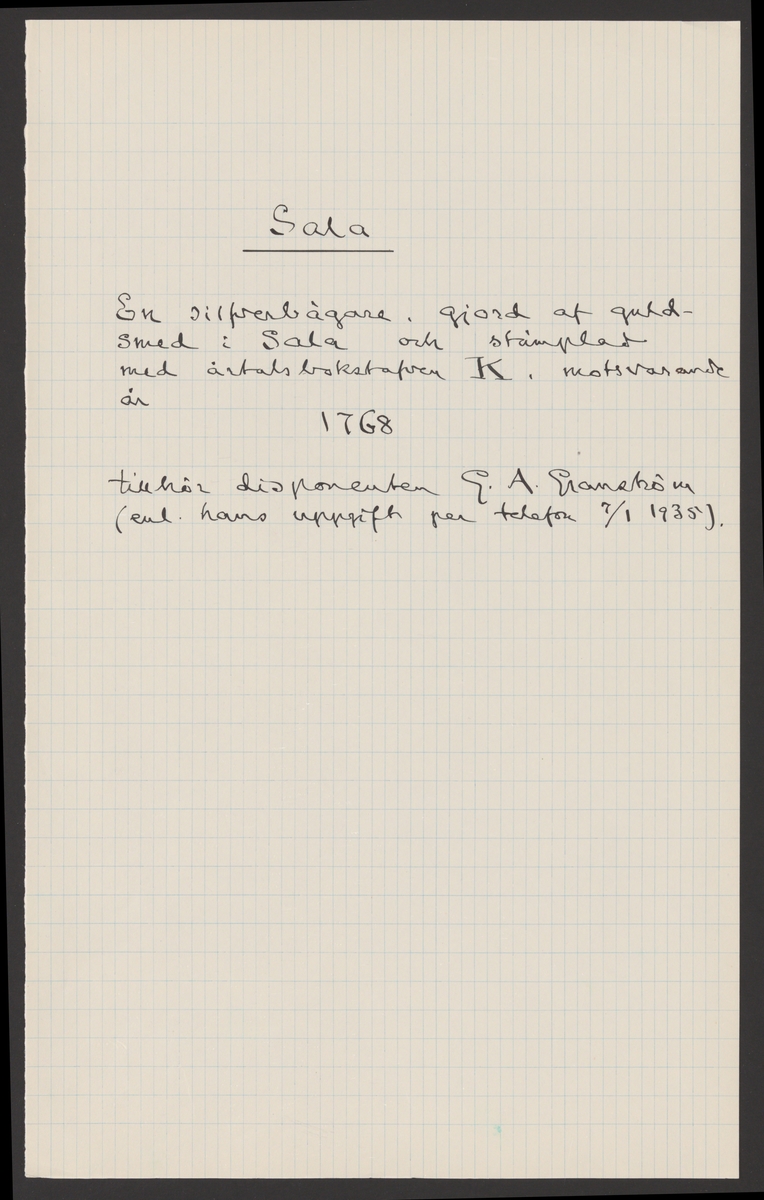 Sala
En silfverbägare, gjord af guld-
smed i Sala och stämplad
med årtalsbokstafven K, motsvarande
år
1768
tillhör disponenten G. A. Granström
(enl. hans uppgift per telefon 7/1 1935).